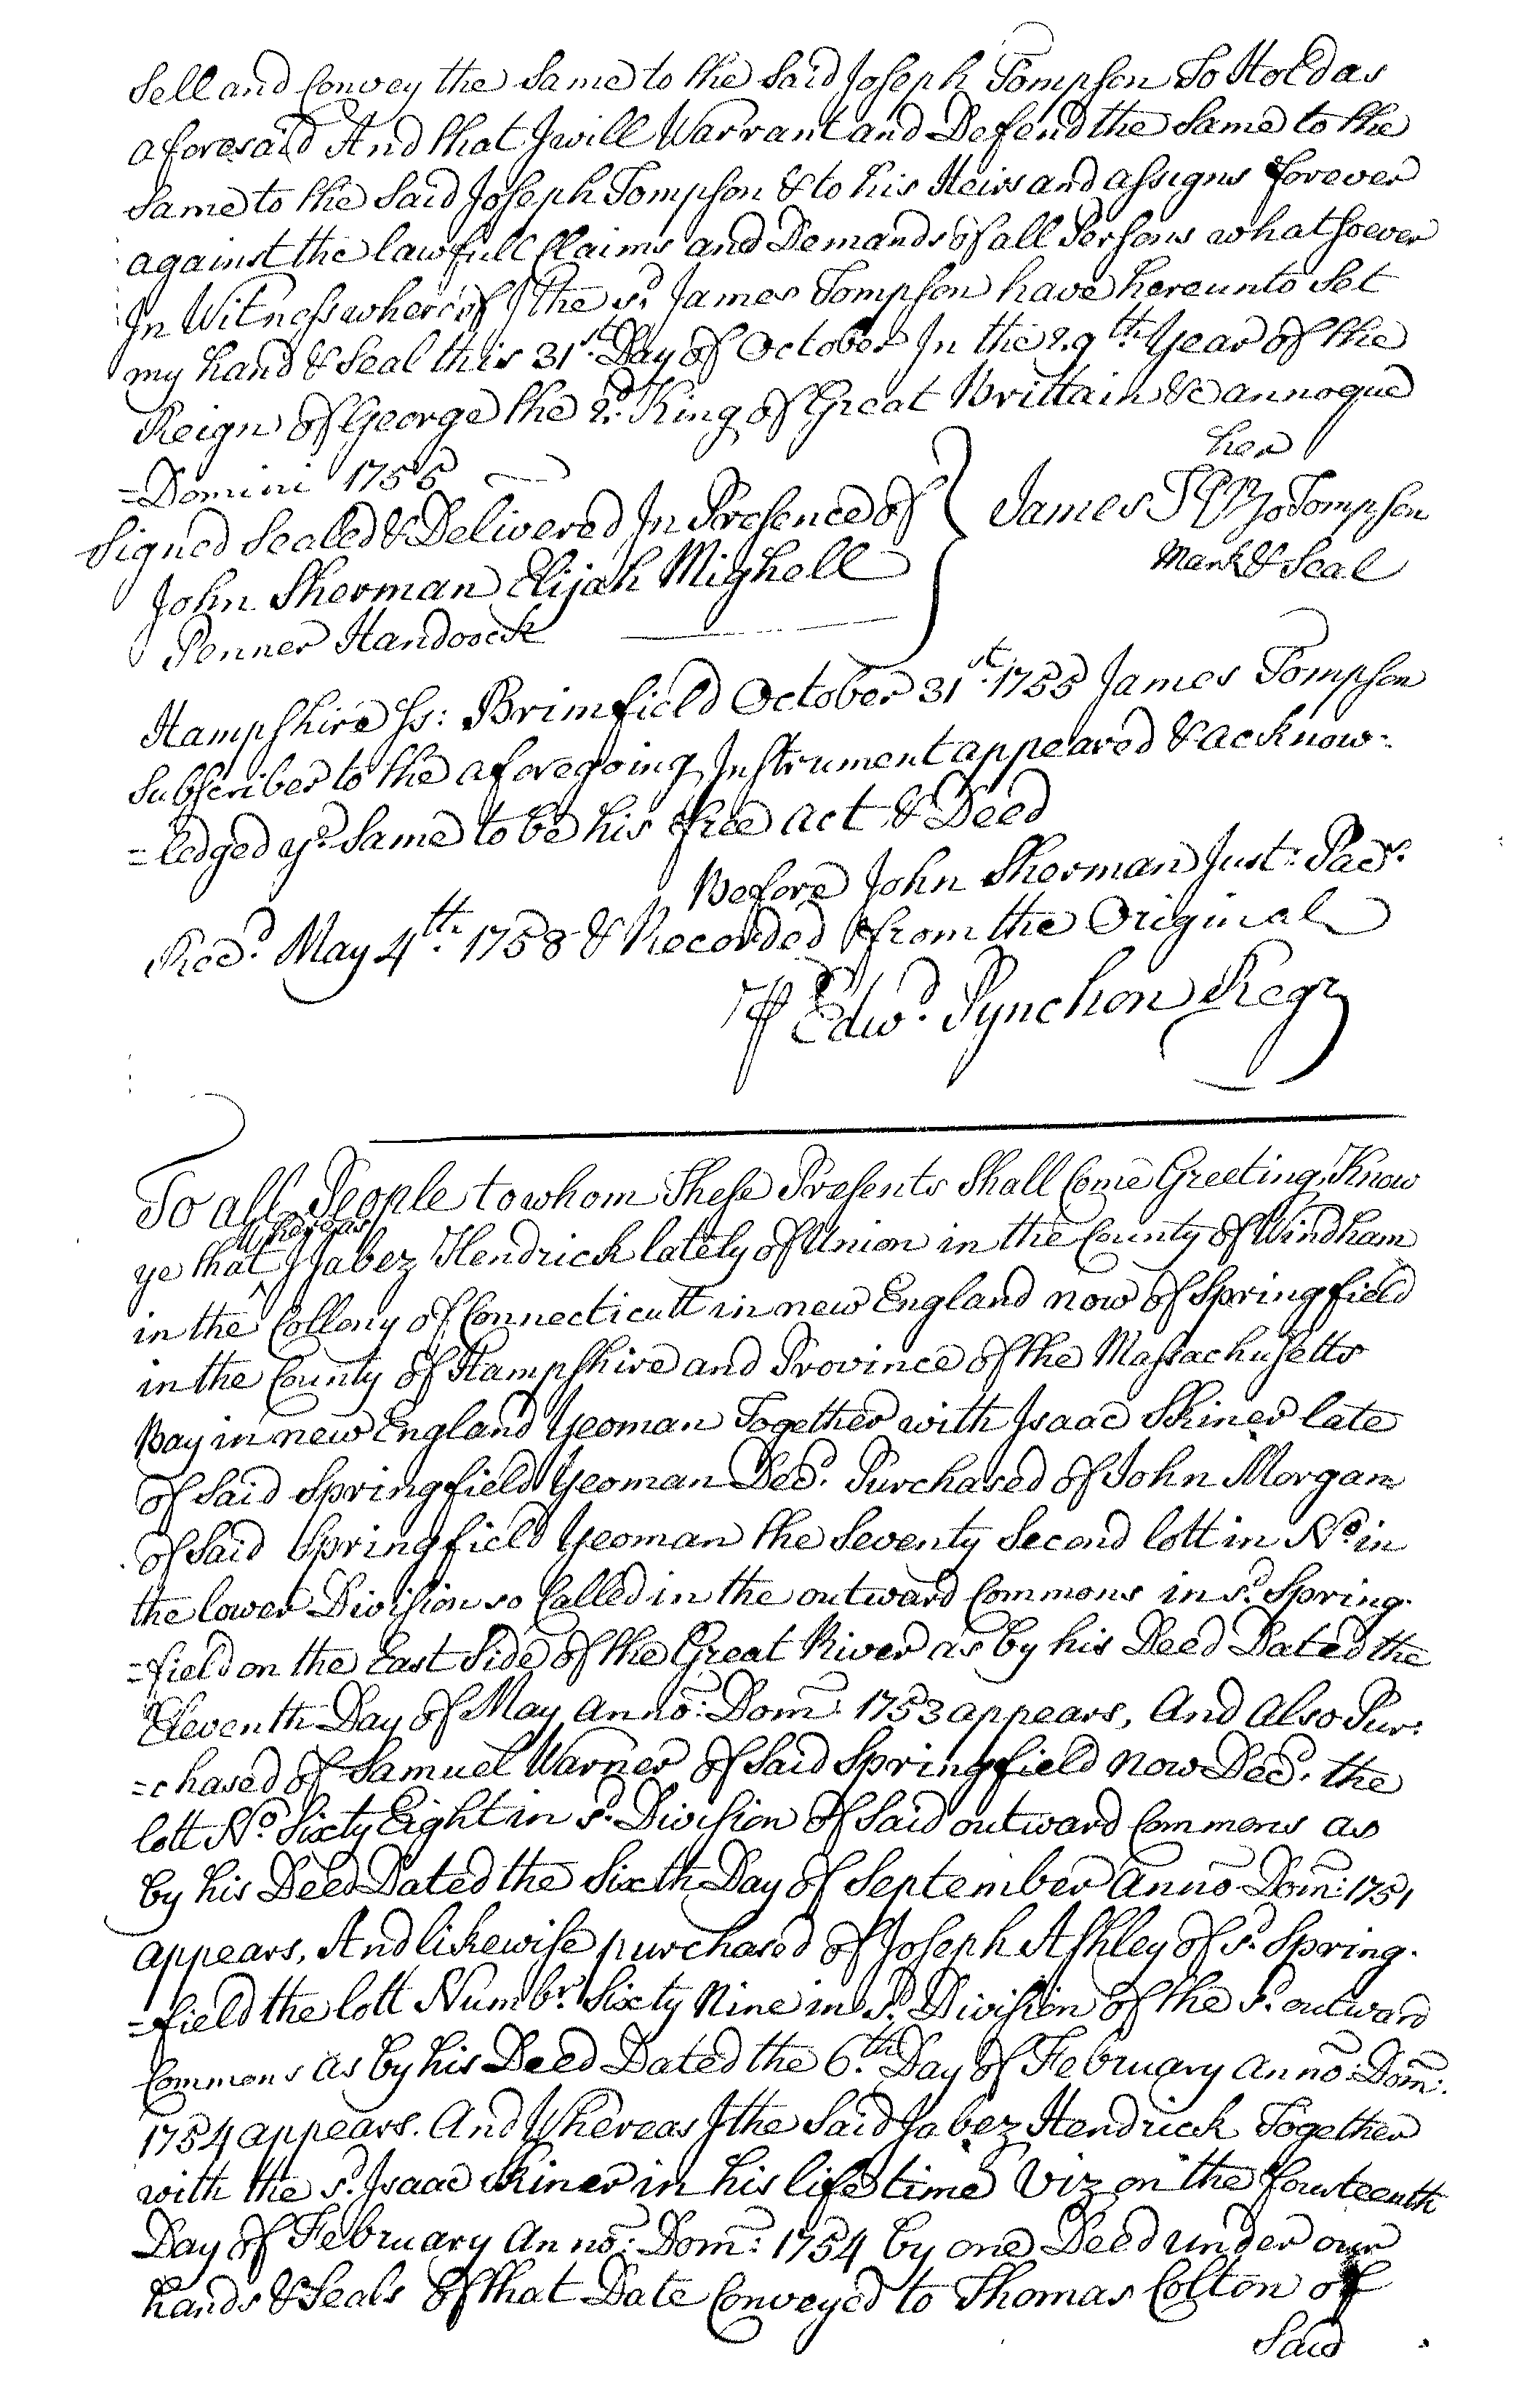 Sell and Convey the Same to the Said Joseph Tompson To Hold as
aforesaid And that I will Warrant and Defend the Same to the
Same to the Said Joseph Tompson & to his Heirs and assigns forever
against the lawfull Claims and Demands of all Persons whatsoever
In Witness whereof I the sd. James Tompson have hereunto Set
my hand & Seal this 31st. Day of October In the 29th. Year of the
Reign of George the 2d. King of Great Brittain &c annoque
=Domini 1755
her
Signed Sealed & Delivered In Presence of
James Tompson
John Sherman Elijah Mighell
Mark & Seal
Penner Handoock
Hampshire Ss: Brimfield October 31st. 1755 James Tompson
Subscriber to the aforegoing Instrument appeared & acknow-
=ledged ye. Same to be his free act & Deed
Before John Sherman Just: Pacs.
Recd. May 4th. 1758 & Recorded from the Original
⅌ Edwd. Pynchon Regr
To all People to whom These Presents Shall Come Greeting, Know
Whereas
ye that ^ I Jabez Hendrick lately of Union in the County of Windham
in the Collony of Connecticutt in new England now of Springfield
in the County of Hampshire and Province of the Massachusetts
Bay in new England Yeoman Together with Isaac Skiner late
of Said Springfield Yeoman Decd. Purchased of John Morgan
of Said Springfield Yeoman the Seventy Second lott in No. in
the lower Division so Called in the outward Commons in sd. Spring-
=field on the East Side of the Great River as by his Deed Dated the
Eleventh Day of May anno: Dom: 1753 appears, And Also Pur:
=chased of Samuel Warner of Said Springfield now Decd. the
lott No. Sixty Eight in sd. Division of Said outward Commons as
by his Deed Dated the Sixth Day of September Anno Dom: 1751
appears, And likewise purchased of Joseph Ashley of sd. Spring-
=field the lott Numbr. Sixty Nine in sd. Division of the sd. outward
Commons as by his Deed Dated the 6th. Day of February anno: Dom:
1754 appears. And Whereas I the Said Jabez Hendrick Together
with the sd. Isaac Skiner in his life time Viz on the fourteenth
Day of February Anno: Dom: 1754 by one Deed under our
hands & Seals of that Date Conveyed to Thomas Colton of
Said